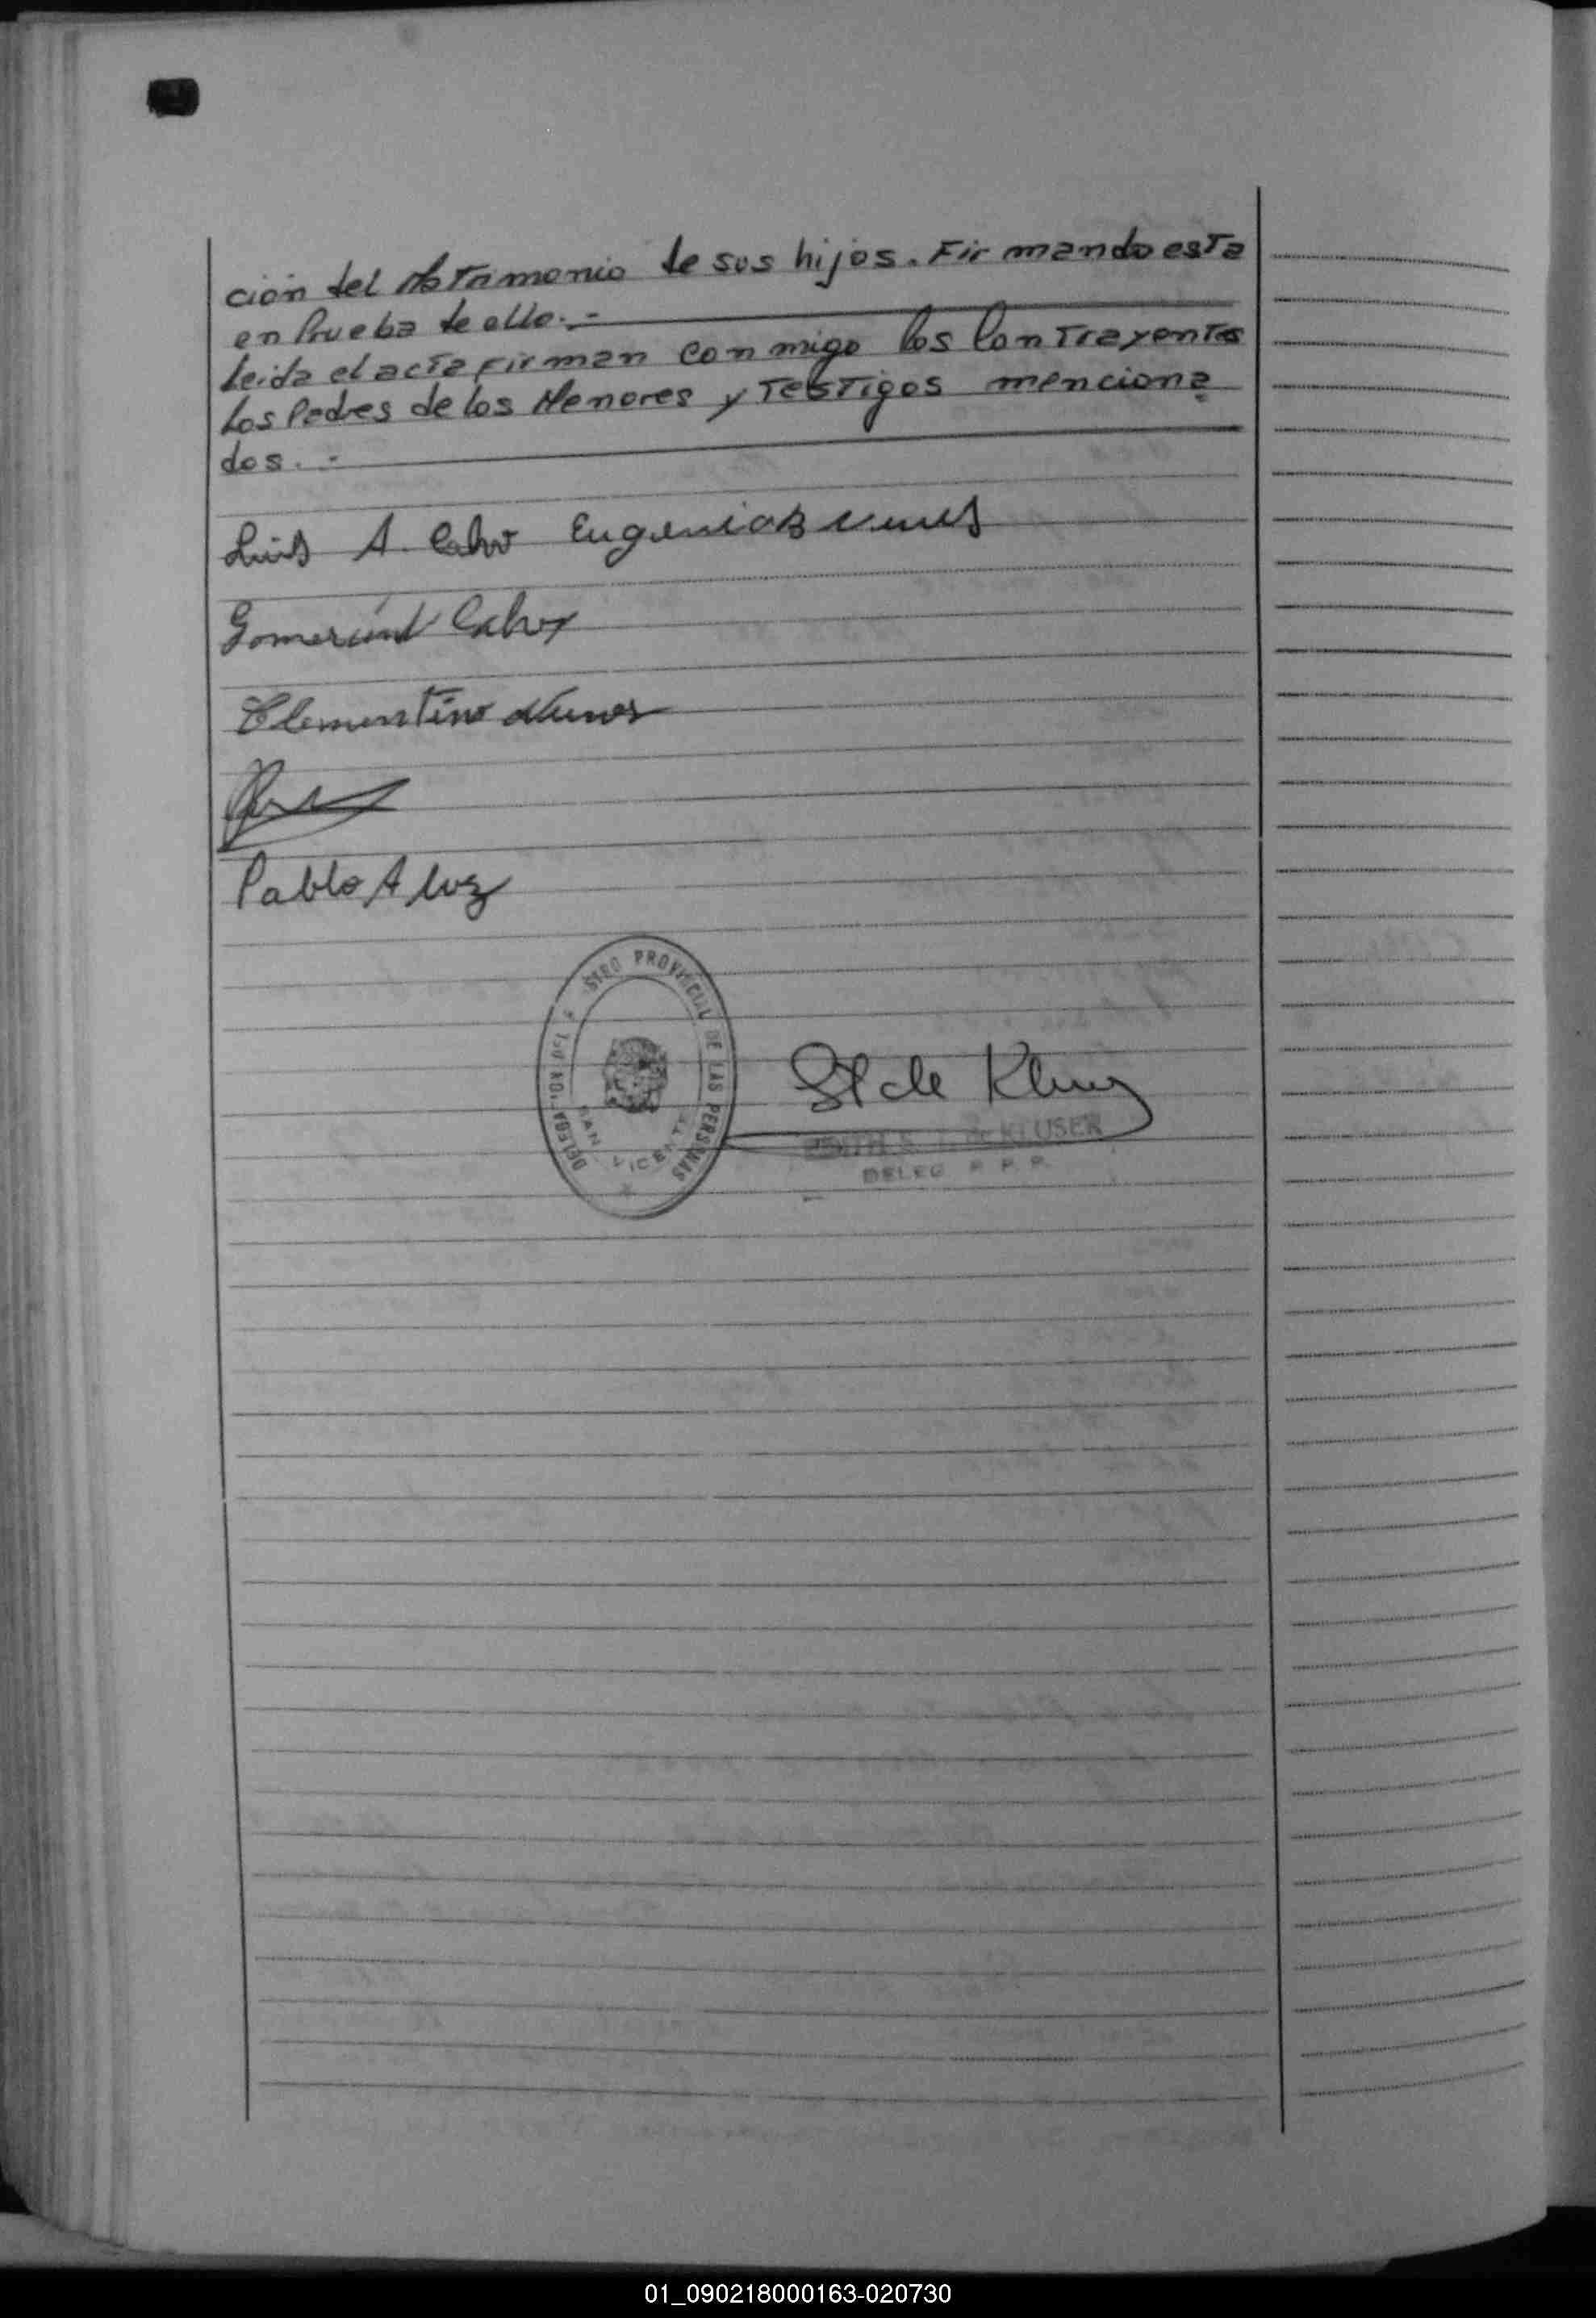 ción del Matrimonio de sus hijos. Firmando esta
en Prueba de ello. -
Leida el acta Firman conmigo los Contrayentes
Los Padres de los Menores y Testigos menciona
dos. -
Luis A. Calvo Eugenia
Calvo
Clementino Nunes
Pablo A
STRO PROVINCIAL DE LAS PERSONAS
SAN VICENTE
St de Klus
EDITH S. de KLUSER
DELEG. R. P. P.
01_090218000163-020730